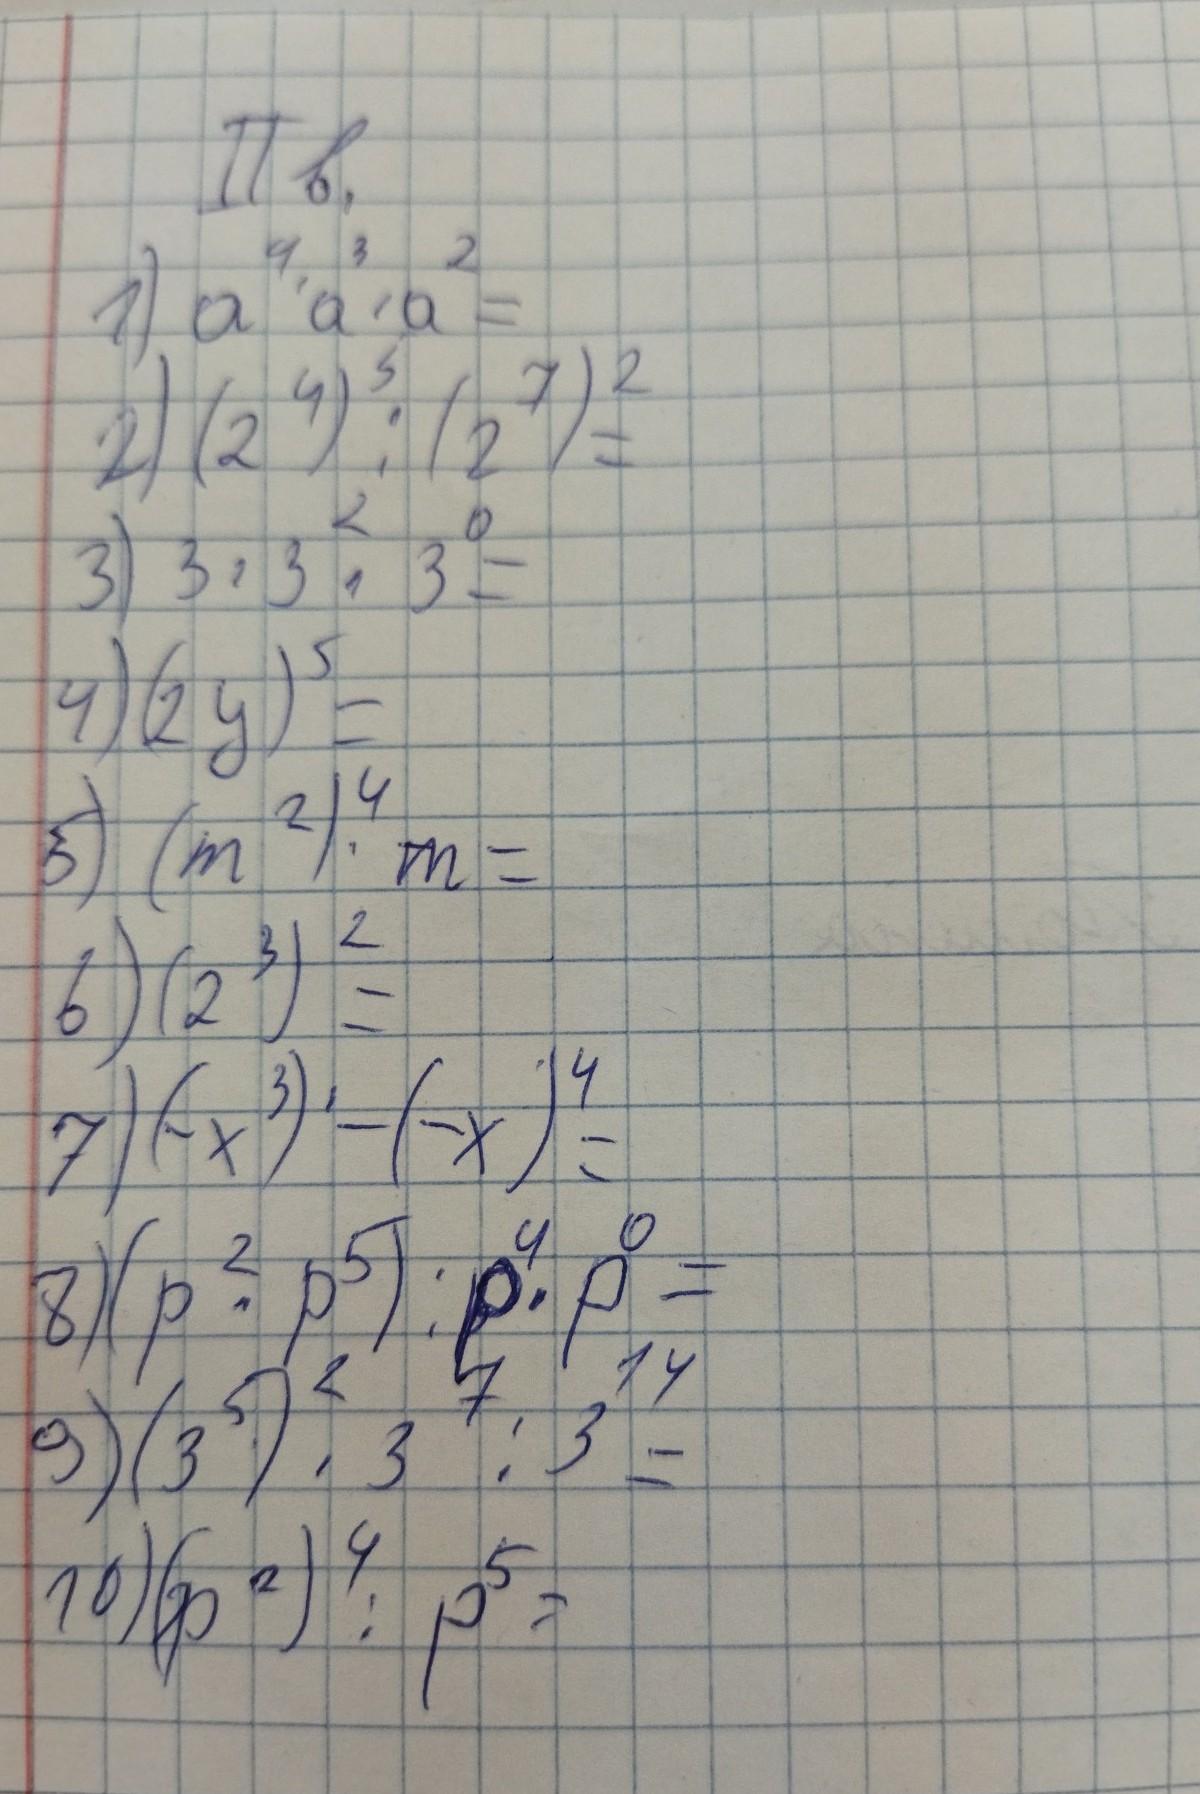 II в.
1) a⁴·a³·a²=
2) (2⁴)⁵:(2⁷)²=
3) 3·3²·3⁰=
4) (2y)⁵=
5) (m²)⁴·m=
6) (2³)²=
7) (-x³)·-(-x)⁴=
8) (p²·p⁵):p⁴·p⁰=
9) (3⁵)²·3⁷:3¹⁴=
10) (p²)⁴:p⁵=